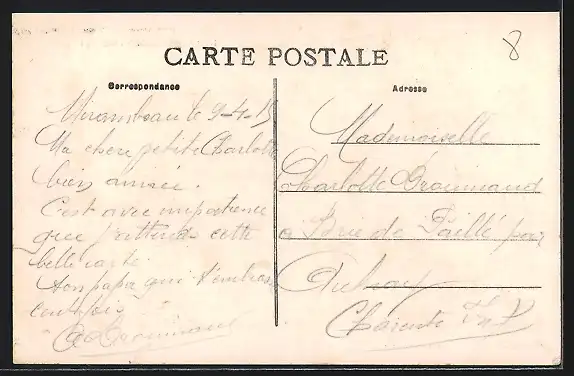 8
CARTE POSTALE
Correspondance
Adresse
Mirambeau le 9-4-15
Ma chere petite Charlotte
bien aimée.
C'est avec impatience
que j'attends cette
belle carte.
Ton papa qui t'embrasse
cent fois
Mademoiselle
Charlotte
a Brie de Paillé par
Aulnay
Charente Inf